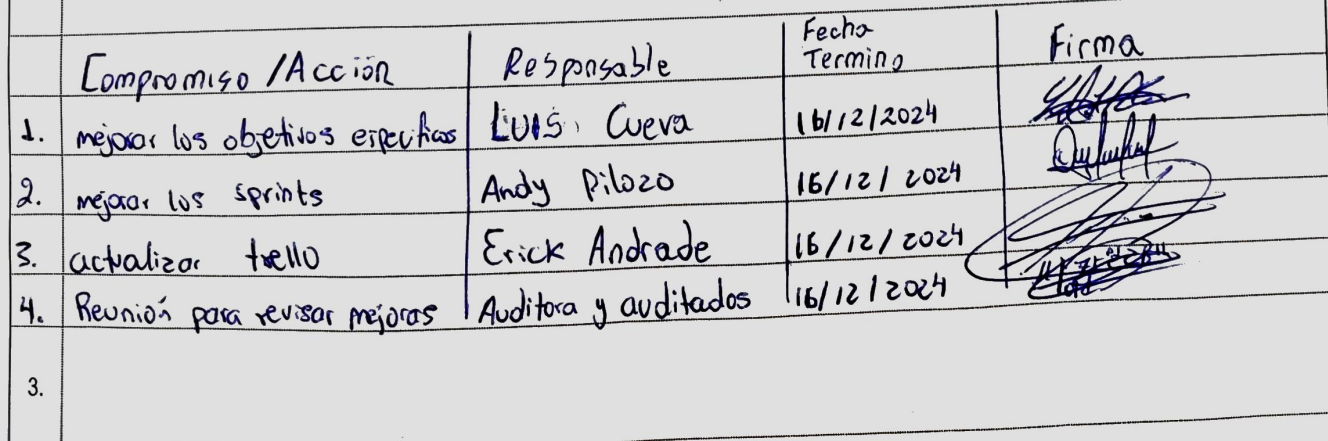 Compromiso /Acción Responsable Fecha Termino Firma
1. mejorar los objetivos especificos Luis Cueva 16/12/2024
2. mejorar los sprints Andy Pilozo 16/12/2024
3. actualizar trello Erick Andrade 16/12/2024
4. Reunión para revisar mejoras Auditora y auditados 16/12/2024
3.